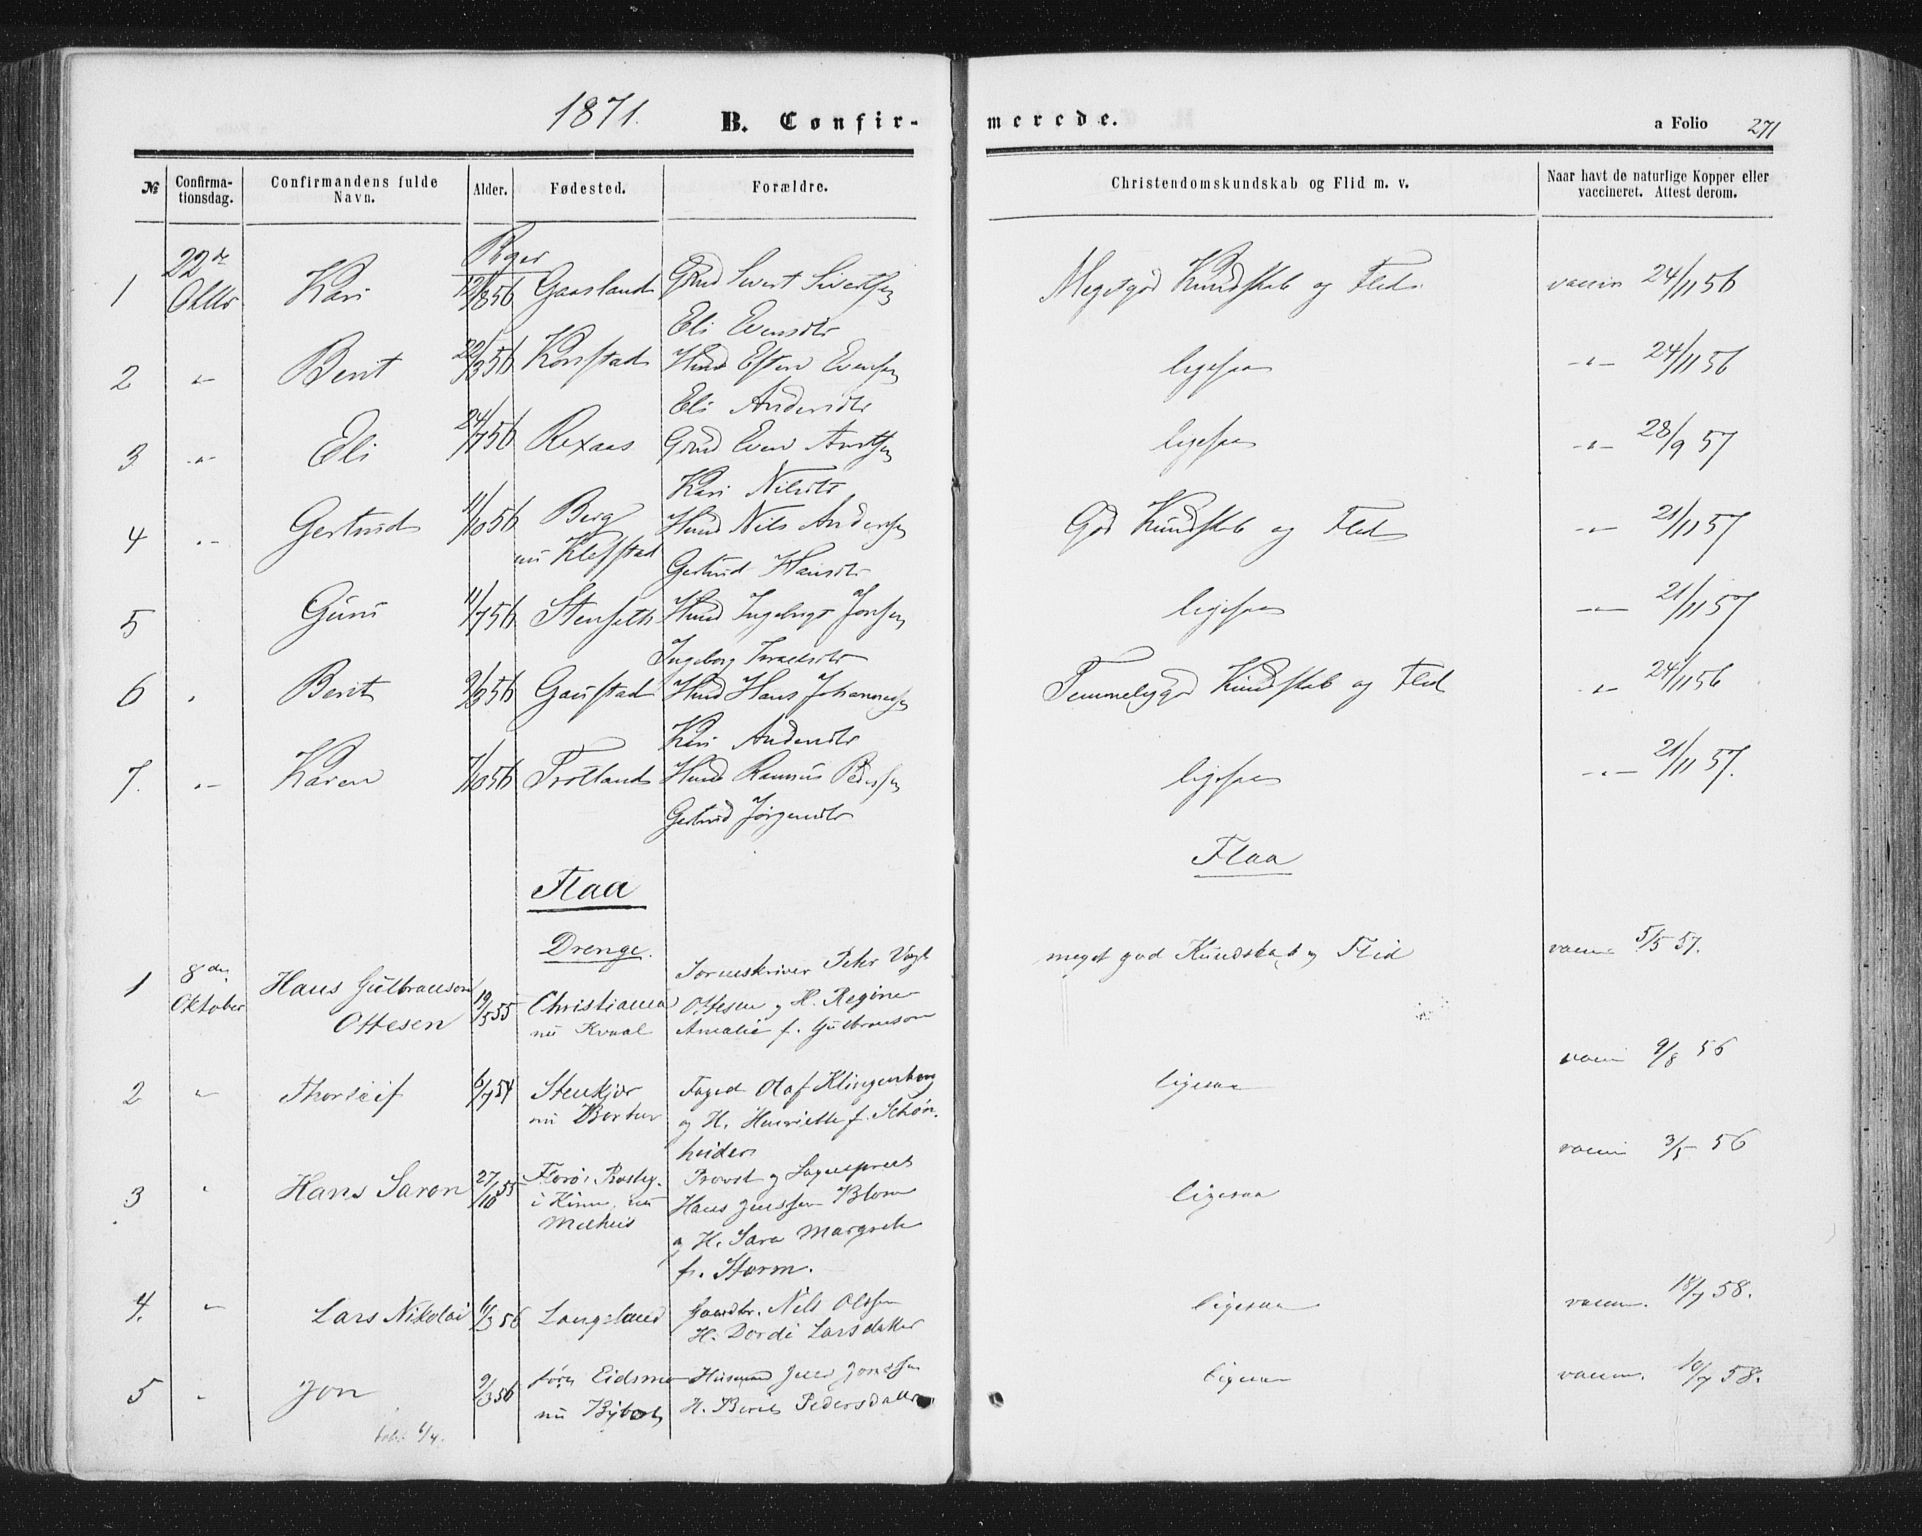 1871.
B. Confir-
merede.
a Folio 271
№
Confirma-
tionsdag.
Confirmandens fulde
Navn.
Alder.
Fødested.
Forældre.
Christendomskundskab og Flid m. v.
Naar havt de naturlige Kopper eller
vaccineret. Attest derom.
Piger
1 22de Oktbr Kari 12/8 56 Gaasland Grmd Sivert Sivertsen
Eli Evensdtr
Megetgod Kundskab og Flid. vaccin 24/11 56
2 " Berit 22/3 56 Korstad Husmd Esten Evensen
Eli Andersdtr
ligesaa -"- 24/11 56
3 -"- Eli 24/7 56 Rexaas Grmd Even Arntsen
Kari Nilsdtr
ligesaa -"- 28/9 57
4 -"- Gertrud 11/10 56 Berg
nu Klefstad
Husmd Nils Andersen
Gertrud Hansdtr
God Kundskab og Flid -"- 21/11 57
5 Guru 11/7 56 Stenseth Husmd Ingebrigt Jonsen
Ingeborg Israelsdtr
ligesaa -"- 21/11 57
6 " Berit 9/3 56 Gaustad Husmd Hans Johannesen
Kari Andersdtr
Temmeliggod Kundskab og Flid -"- 24/11 56
7. -"- Karen 7/10 56 Trotland Husmd Rasmus Pedersen
Gertrud Jørgensdtr
ligesaa -"- 21/11 57.
Flaa
Flaa
Drenge.
1 8de Oktober Hans Gulbranson
Ottesen
19/5 55 Christiania
nu Kvaal
Sorenskriver Peter Vogt
Ottesen og H. Regine
Amalie f. Gulbranson
meget god Kundskab og Flid vaccin 5/5 57.
2 " Thorleif 6/7 54 Stenkjær
nu
Foged Olaf Klingenberg
og H. Henriette f. Schøn-
heider
ligesaa vaccin 9/8 56
3 " Hans Saron 27/10 55 Florø
i Kinn, nu
Melhus
Provst og Sognepræst
Hans Jenssen Blom
og H. Sara Margrete
f. Storm.
ligesaa vaccin 3/5 56
4. " Lars Nikolai 6/3 56 Langeland Gaardbr. Nils Olsen
H. Dordi Larsdatter
ligesaa vaccin. 18/7 58.
5 " Jon 9/3 56 Eidsmo
nu
Husmand Jonsen
H. Berit Pedersdatter
ligesaa vaccin. 10/7 58.